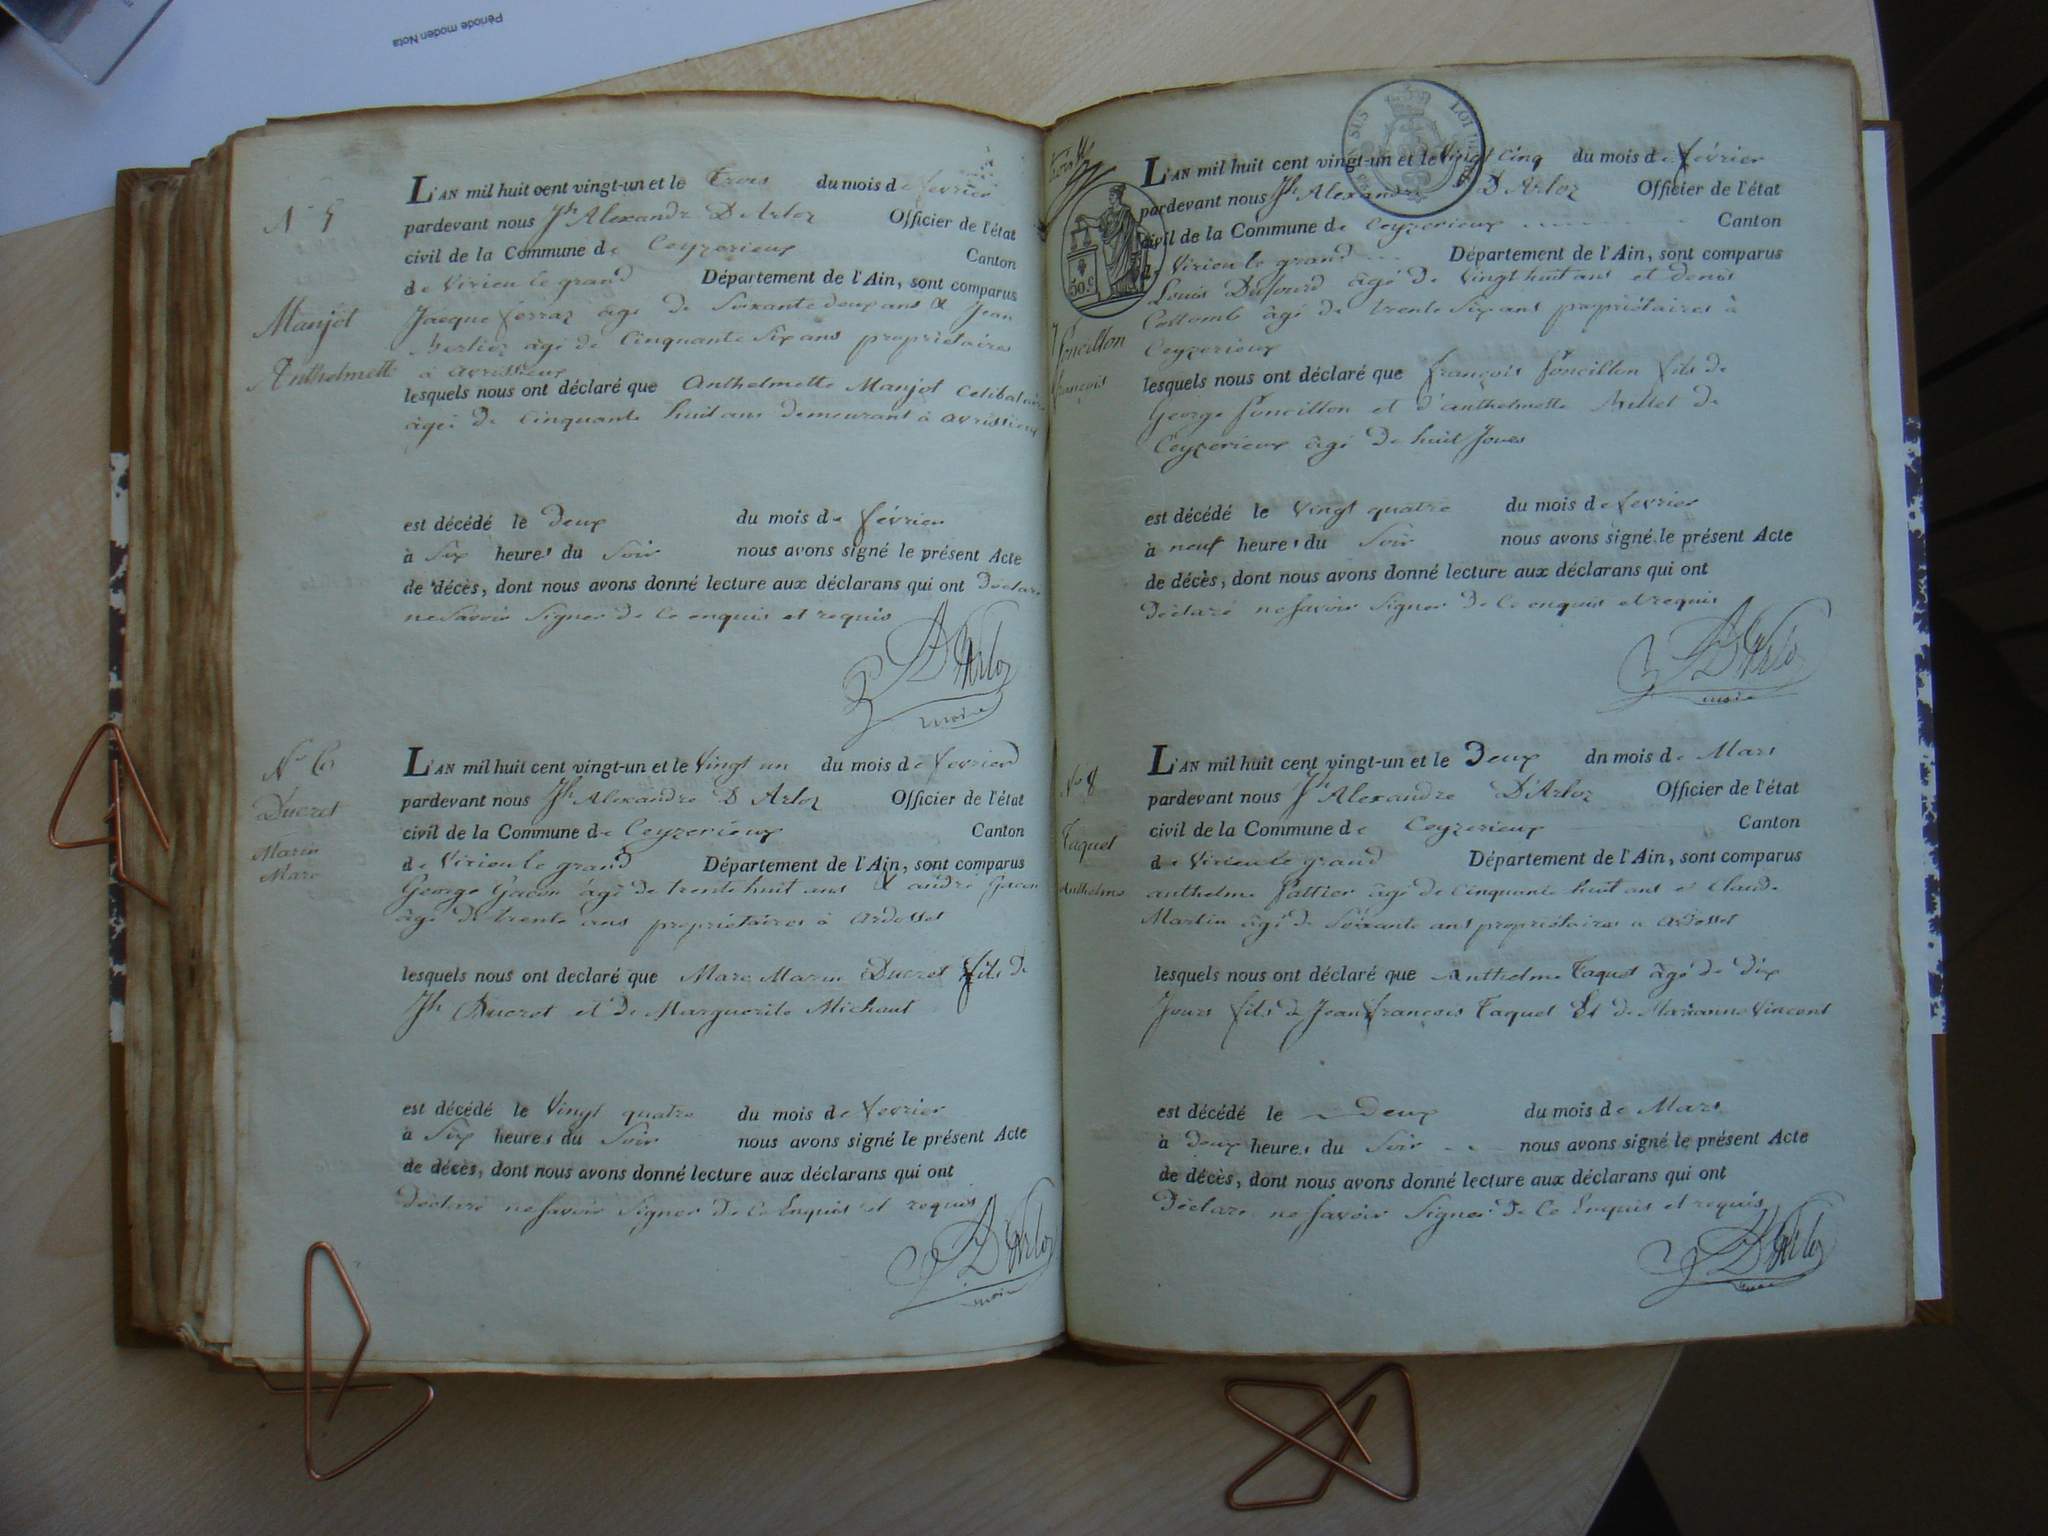 Période moden Nota
N° 5
Manjot
Anthelmette
L'AN mil huit cent vingt-un et le trois du mois de fevrier
pardevant nous Jh Alexandre D'Arloz Officier de l'état
civil de la Commune de Ceyzerieux Canton
de Virieu le grand Département de l'Ain, sont comparus
Jacque ferraz âgé de Soixante deux ans & Jean
Berlioz âgé de Cinquante Six ans propriétaires
à avrissieux
lesquels nous ont déclaré que Anthelmette Manjot Celibataire
âgée de Cinquante huit ans demeurant à avrissieux
est décédé le deux du mois de février
à Six heures du Soir nous avons signé le présent Acte
de décès, dont nous avons donné lecture aux déclarans qui ont Déclaré
ne Savoir Signer de Ce enquis et requis
D'Arloz
maire
N° 6
Ducret
Marin
Marc
L'AN mil huit cent vingt-un et le Vingt un du mois de Fevrier
pardevant nous Jh Alexandre D'Arloz Officier de l'état
civil de la Commune de Ceyzerieux Canton
de Virieu le grand Département de l'Ain, sont comparus
George Gacon âgé de trente huit ans & andré Gacon
âgé de trente ans propriétaires à Ardosset
lesquels nous ont declaré que Marc Marin Ducret fils de
Jh Ducret et de Marguerite Michaut
est décédé le Vingt quatre du mois de Fevrier
à Six heures du Soir nous avons signé le présent Acte
de décès, dont nous avons donné lecture aux déclarans qui ont
Déclaré ne Savoir Signer de Ce Enquis et requis
D'Arloz
maire
50 c
7
Poncillon
françois
L'AN mil huit cent vingt-un et le Vingt Cinq du mois de Février
pardevant nous Jh Alexandre D'Arloz Officier de l'état
civil de la Commune de Ceyzerieux Canton
de Virieu le grand Département de l'Ain, sont comparus
Louis Dufourd âgé de Vingt huit ans et denis
Collomb âgé de trente Six ans propriétaires à
Ceyzerieux
lesquels nous ont déclaré que françois Poncillon fils de
George Poncillon et d'anthelmette Millet de
Ceyzerieux âgé de huit Jours
est décédé le Vingt quatre du mois de fevrier
à neuf heures du Soir nous avons signé le présent Acte
de décès, dont nous avons donné lecture aux déclarans qui ont
Déclaré ne Savoir Signer de Ce enquis et requis
D'Arloz
maire
N° 8
Taquet
Anthelme
L'AN mil huit cent vingt-un et le Deux dn mois de Mars
pardevant nous Jh Alexandre D'Arloz Officier de l'état
civil de la Commune de Ceyzerieux Canton
de Virieu le grand Département de l'Ain, sont comparus
anthelme Pattier âgé de Cinquante huit ans et Claude
Martin âgé de Soixante ans propriétaires a Ardosset
lesquels nous ont déclaré que Anthelme Taquet âgé de dix
Jours fils de Jean françois Taquet Et de Marianne Vincent
est décédé le deux du mois de Mars
à deux heures du Soir nous avons signé le présent Acte
de décès, dont nous avons donné lecture aux déclarans qui ont
Déclaré ne Savoir Signer de Ce Enquis et requis
D'Arloz
maire